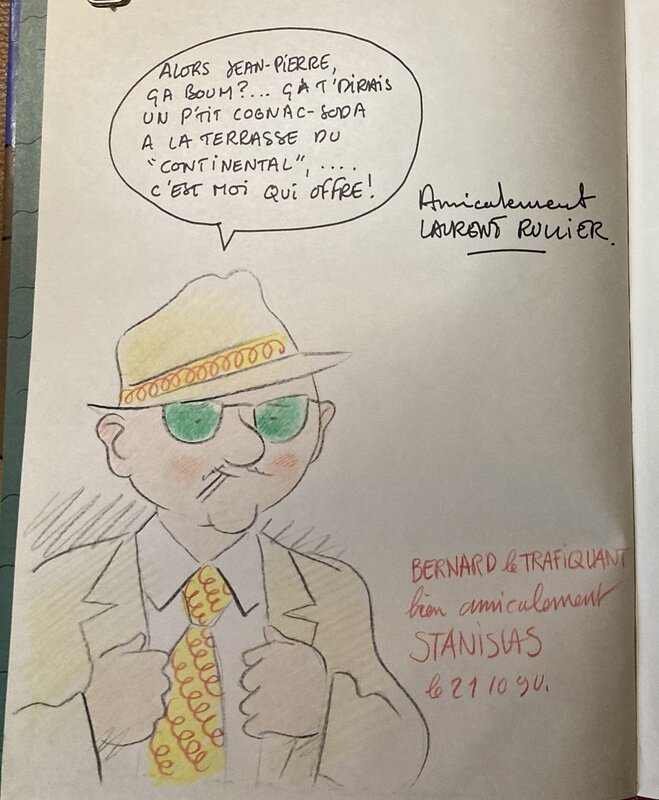 ALORS JEAN-PIERRE,
ÇA BOUM?... ÇA T'DIRAIS
UN P'TIT COGNAC-SODA
A LA TERRASSE DU
"CONTINENTAL", ....
C'EST MOI QUI OFFRE!
Amicalement
LAURENT RULLIER.
BERNARD le TRAFIQUANT
bien amicalement
STANISLAS
le 21 10 90.